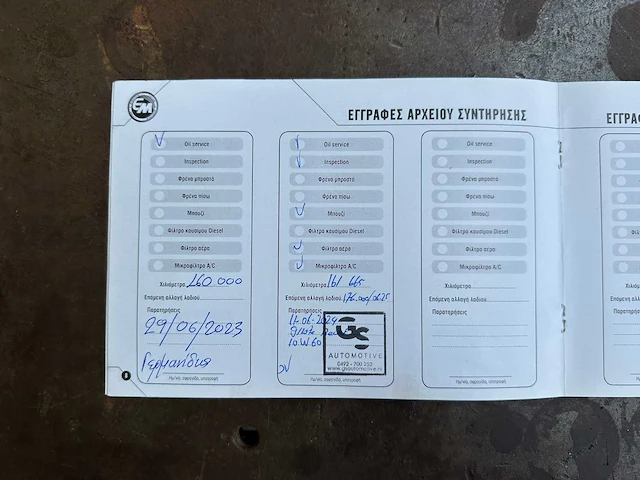 GM
ΕΓΓΡΑΦΕΣ ΑΡΧΕΙΟΥ ΣΥΝΤΗΡΗΣΗΣ
Oil service
Inspection
Φρένα μπροστά
Φρένα πίσω
Μπουζί
Φίλτρο καυσίμου Diesel
Φίλτρο αέρα
Μικροφίλτρο A/C
Χιλιόμετρα 160.000
Επόμενη αλλαγή λαδιού
Παρατηρήσεις
29/06/2023
Ημ/νία, σφραγίδα, υπογραφή
8
Oil service
Inspection
Φρένα μπροστά
Φρένα πίσω
Μπουζί
Φίλτρο καυσίμου Diesel
Φίλτρο αέρα
Μικροφίλτρο A/C
Χιλιόμετρα 161 665
Επόμενη αλλαγή λαδιού
Παρατηρήσεις
10W60
GS
AUTOMOTIVE
Ημ/νία, σφραγίδα, υπογραφή
Oil service
Inspection
Φρένα μπροστά
Φρένα πίσω
Μπουζί
Φίλτρο καυσίμου Diesel
Φίλτρο αέρα
Μικροφίλτρο A/C
Χιλιόμετρα
Επόμενη αλλαγή λαδιού
Παρατηρήσεις
Ημ/νία, σφραγίδα, υπογραφή
ΕΓΓΡΑΦ